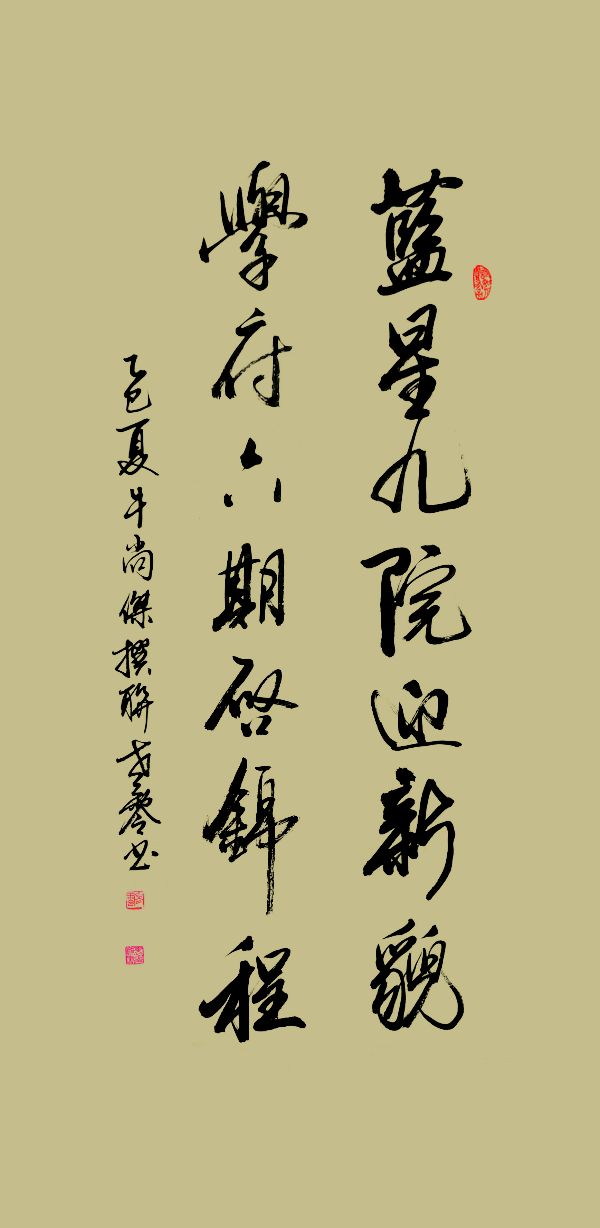 藍星九院迎新貌
學府六期啓錦程
乙巳夏牛尚傑撰聯 書